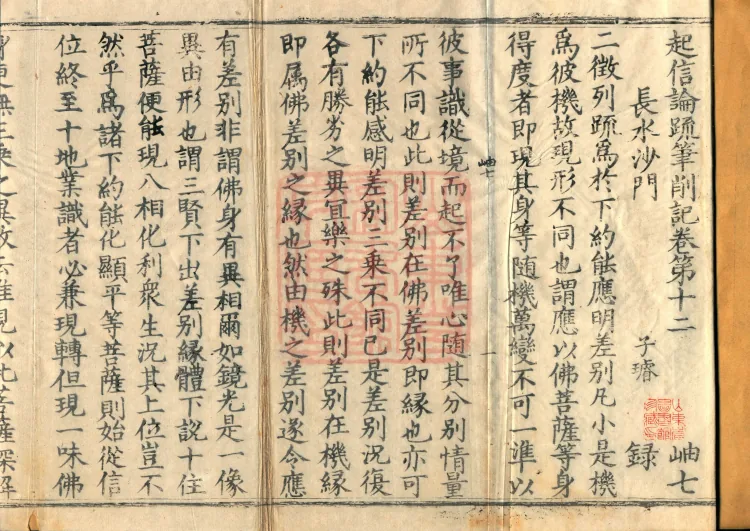 起信論疏筆削記卷第十二 岫七
長水沙門 子璿 錄
二徵列疏爲於下約能應明差別凡小是機
爲彼機故現形不同也謂應以佛菩薩等身
得度者即現其身等隨機萬變不可一準以
岫七 一
彼事識從境而起不了唯心隨其分別情量
所不同也此則差別在佛差別即緣也亦可
下約能感明差別三乘不同已是差別況復
各有勝劣之異冝樂之殊此則差別在機緣
即属佛差別之緣也然由機之差別遂令應
有差別非謂佛身有異相爾如鏡光是一像
異由形也謂三賢下出差別緣體下說十住
菩薩便能現八相化利衆生況其上位豈不
然乎爲諸下約能化顯平等菩薩則始從信
位終至十地業識者必兼現轉但現一味佛
身更無三乘之異故云唯見以此菩薩深解